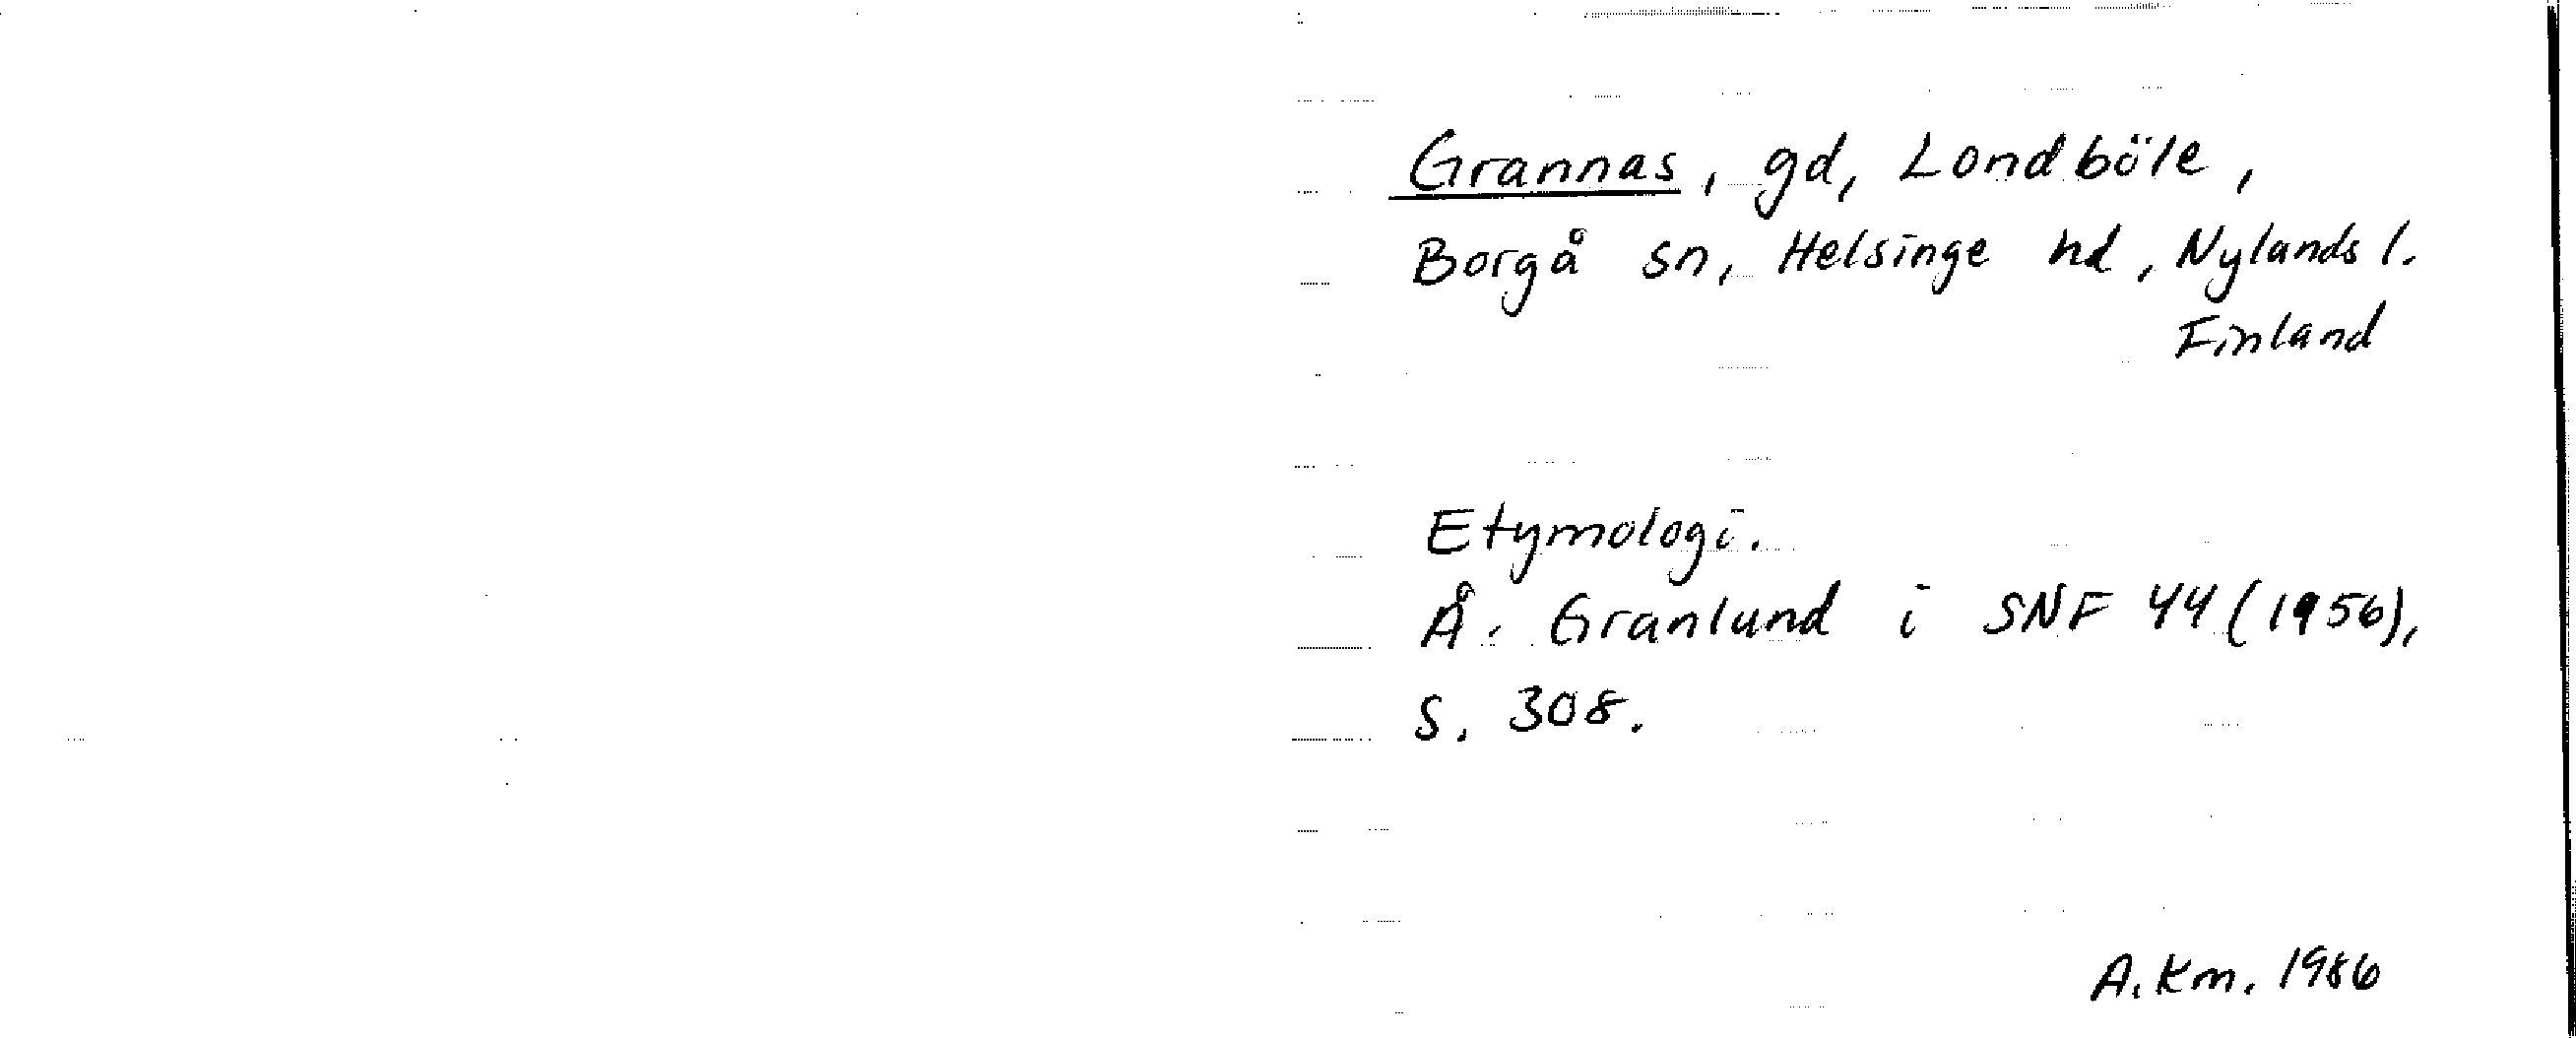 Grannas, gd, Londböle,
Borgå sn, Helsinge hd, Nylands l.
Finland
Etymologi.
Å. Granlund i SNF 44 (1956),
S. 308.
A. Km. 1986